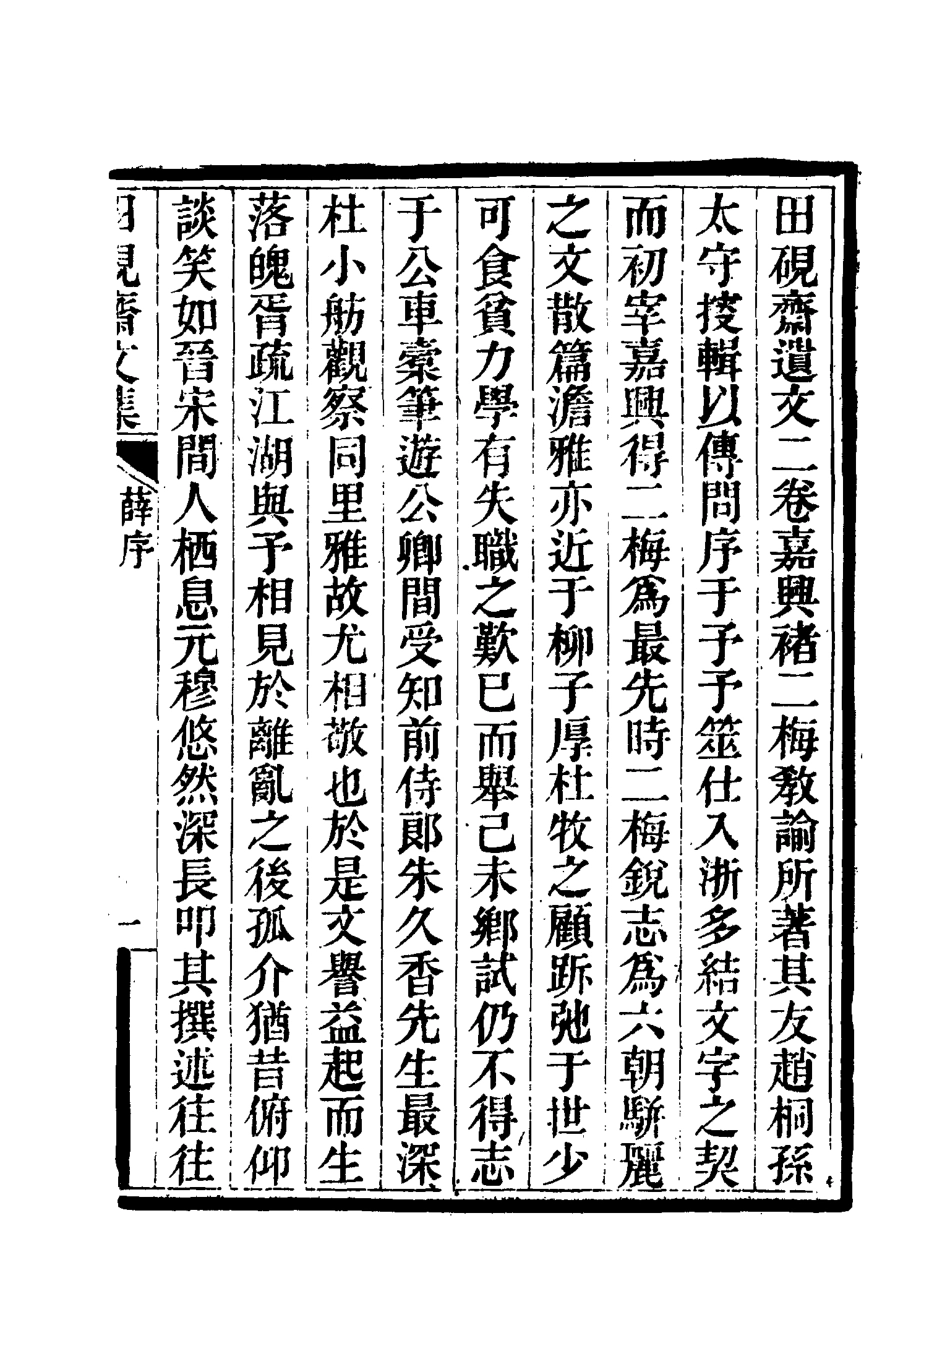 田硯齋遺文二卷嘉興褚二梅敎諭所著其友趙桐孫
太守㨮輯以傳問序于予予筮仕入浙多結文字之契
而初宰嘉興得二梅爲最先時二梅銳志爲六朝駢麗
之文散篇澹雅亦近于柳子厚杜牧之顧跅弛于世少
可食貧力學有失職之歎已而舉己未鄕試仍不得志
于公車橐筆遊公卿間受知前侍郎朱久香先生最深
杜小舫觀察同里雅故尤相敬也於是文譽益起而生
落魄胥疏江湖與予相見於離亂之後孤介猶昔俯仰
談笑如晉宋間人栖息元穆悠然深長叩其撰述往往
田硯齋文集
薛序
一